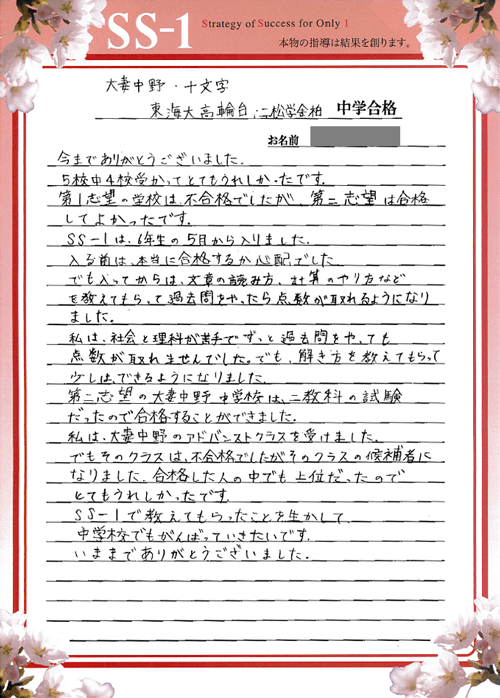 SS-1
Strategy of Success for Only 1
本物の指導は結果を創ります。
大妻中野・十文字
東海大高輪台・二松学舎柏 中学合格
お名前
今までありがとうございました。
5校中4校受かってとてもうれしかったです。
第1志望の学校は、不合格でしたが、第二志望は合格
してよかったです。
SS-1は、6年生の5月から入りました。
入る前は、本当に合格するか心配でした
でも入ってからは、文章の読み方、計算のやり方など
を教えてもらって過去問をやったら点数が取れるようになり
ました。
私は、社会と理科が苦手でずっと過去問をやっても
点数が取れませんでした。でも、解き方を教えてもらって
少しは、できるようになりました。
第二志望の大妻中野中学校は、二教科の試験
だったので合格することができました。
私は、大妻中野のアドバンストクラスを受けました。
でもそのクラスは、不合格でしたがそのクラスの候補者に
なりました。合格した人の中でも上位だったので
とてもうれしかったです。
SS-1で教えてもらったことを生かして、
中学校でもがんばっていきたいです。
いままでありがとうございました。